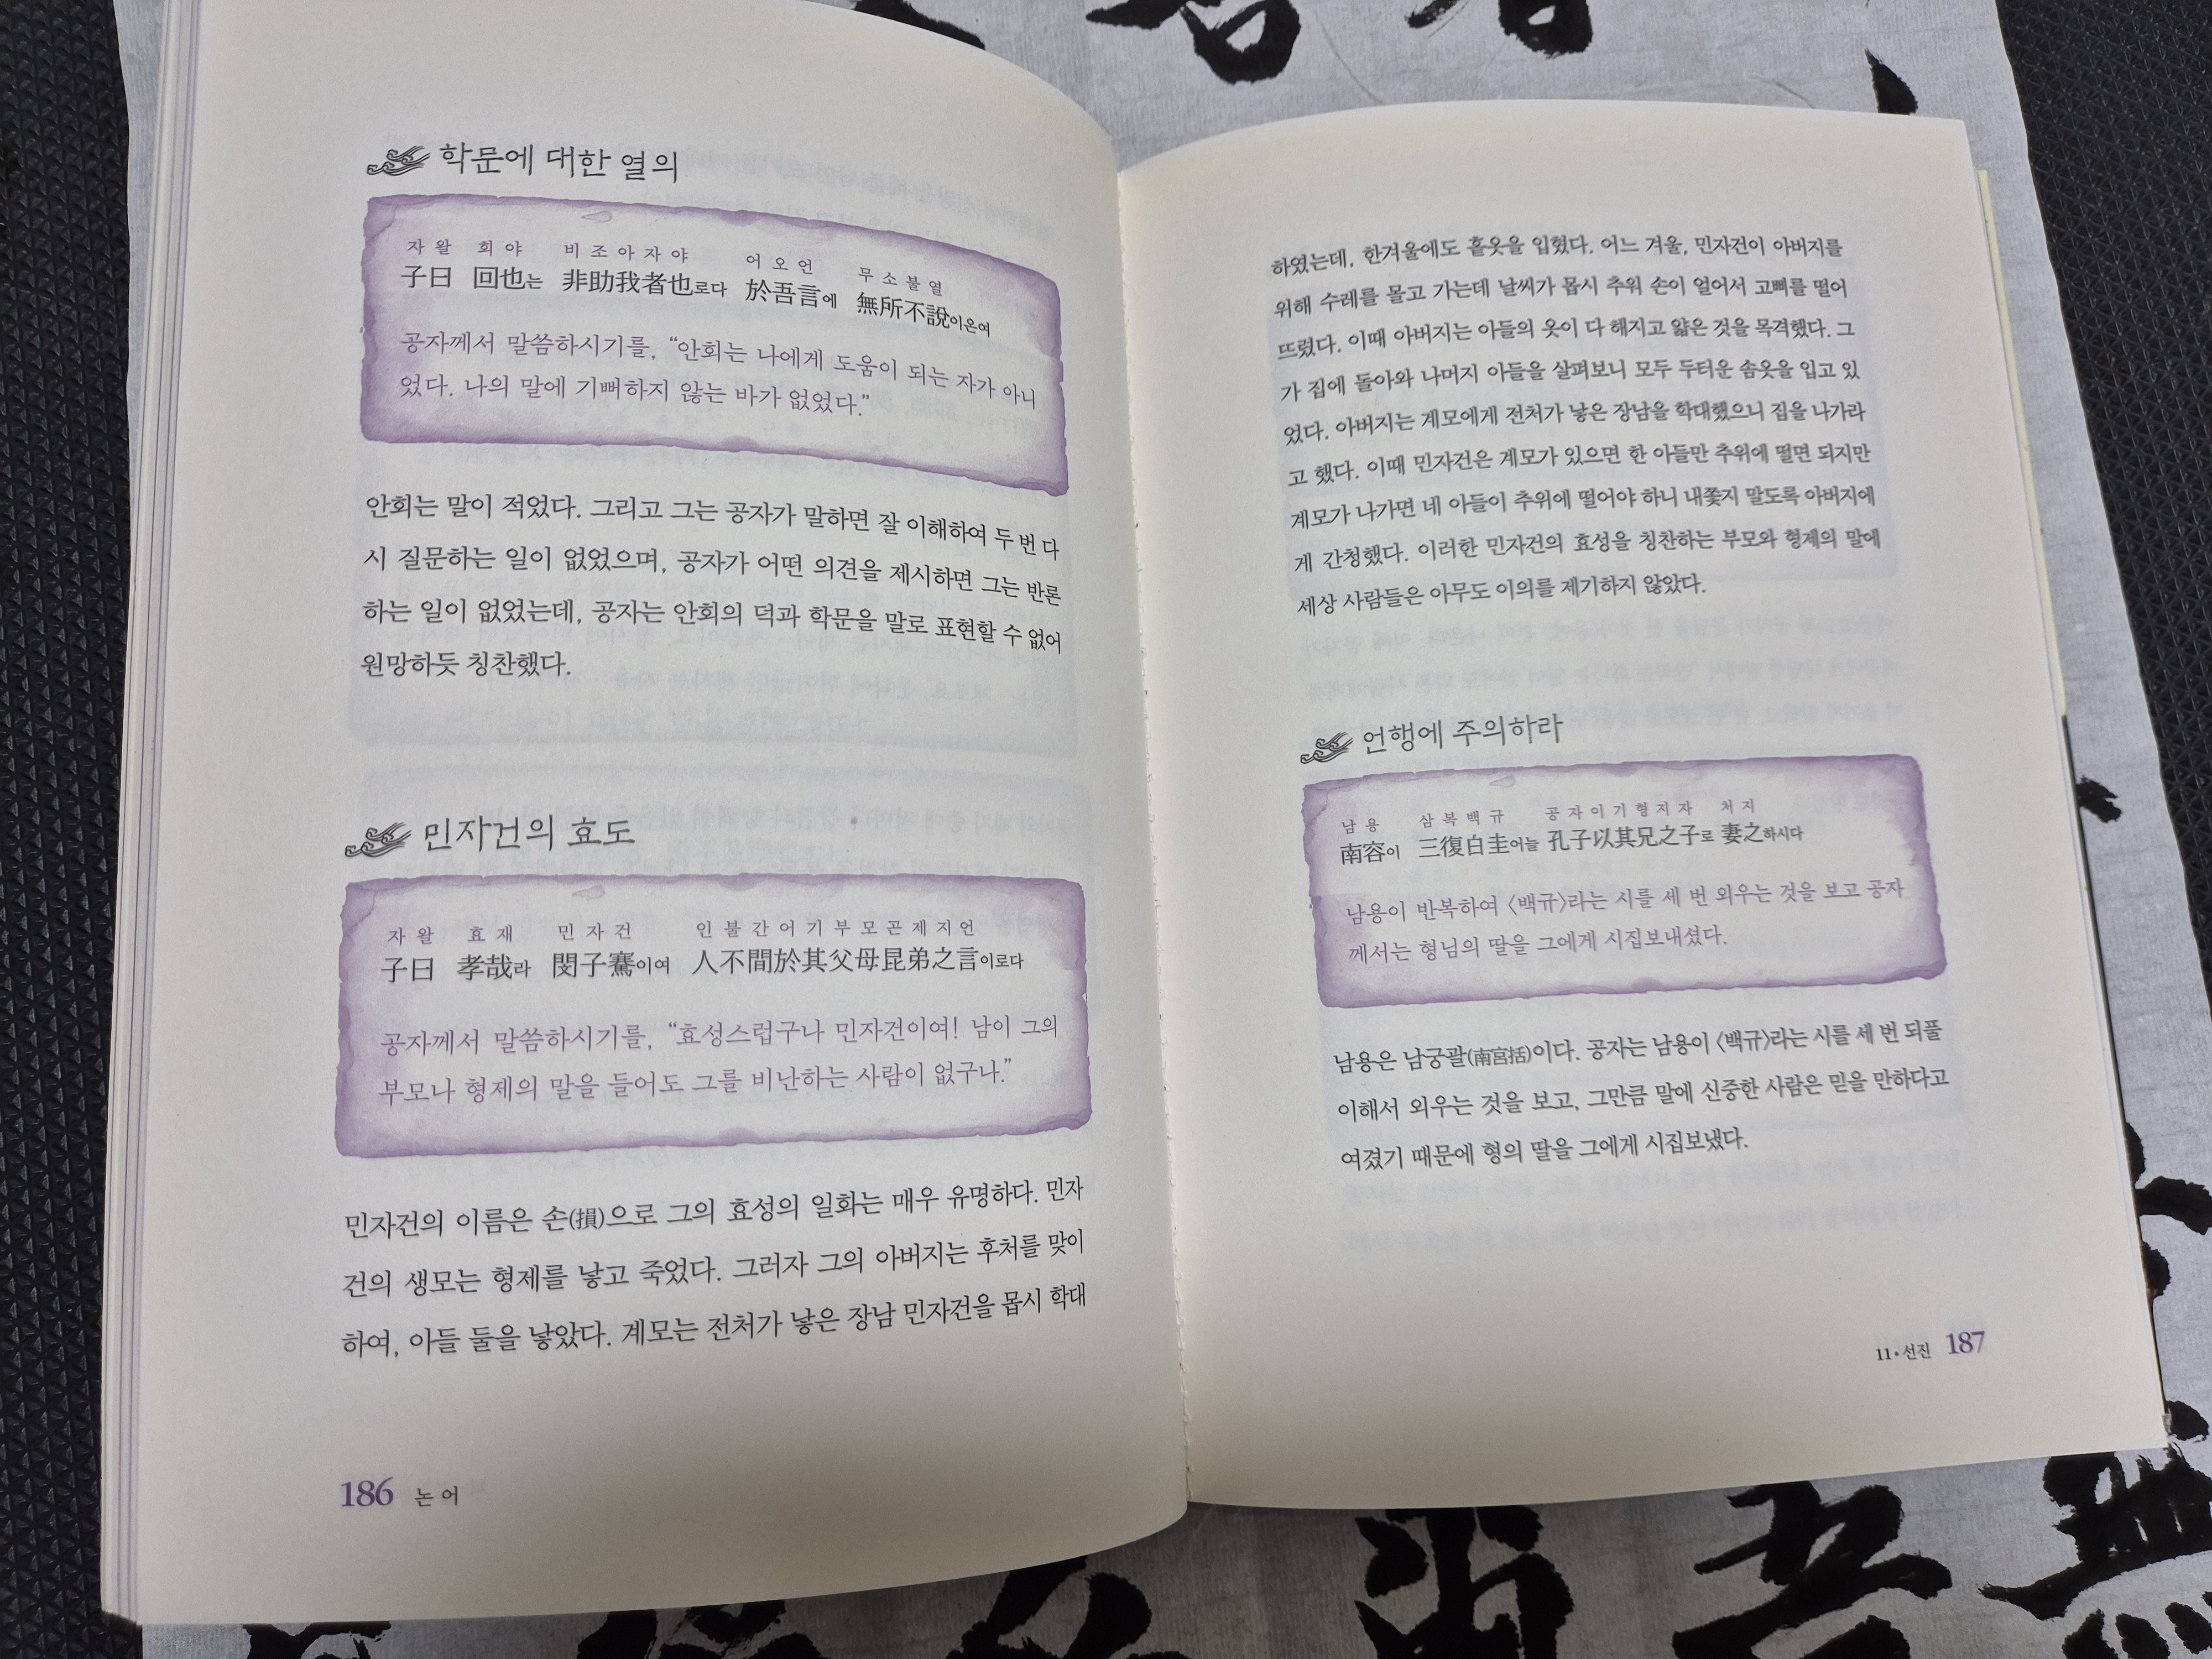 학문에 대한 열의
자왈 회야 비조아자야 어오언 무소불열
子曰 回也는 非助我者也로다 於吾言에 無所不說이온여
공자께서 말씀하시기를, “안회는 나에게 도움이 되는 자가 아니
었다. 나의 말에 기뻐하지 않는 바가 없었다.”
안회는 말이 적었다. 그리고 그는 공자가 말하면 잘 이해하여 두 번 다
시 질문하는 일이 없었으며, 공자가 어떤 의견을 제시하면 그는 반론
하는 일이 없었는데, 공자는 안회의 덕과 학문을 말로 표현할 수 없어
원망하듯 칭찬했다.
민자건의 효도
자왈 효재 민자건 인불간어기부모곤제지언
子曰 孝哉라 閔子騫이여 人不間於其父母昆弟之言이로다
공자께서 말씀하시기를, “효성스럽구나 민자건이여! 남이 그의
부모나 형제의 말을 들어도 그를 비난하는 사람이 없구나.”
민자건의 이름은 손(損)으로 그의 효성의 일화는 매우 유명하다. 민자
건의 생모는 형제를 낳고 죽었다. 그러자 그의 아버지는 후처를 맞이
하여, 아들 둘을 낳았다. 계모는 전처가 낳은 장남 민자건을 몹시 학대
186 논어
하였는데, 한겨울에도 홑옷을 입혔다. 어느 겨울, 민자건이 아버지를
위해 수레를 몰고 가는데 날씨가 몹시 추워 손이 얼어서 고삐를 떨어
뜨렸다. 이때 아버지는 아들의 옷이 다 해지고 얇은 것을 목격했다. 그
가 집에 돌아와 나머지 아들을 살펴보니 모두 두터운 솜옷을 입고 있
었다. 아버지는 계모에게 전처가 낳은 장남을 학대했으니 집을 나가라
고 했다. 이때 민자건은 계모가 있으면 한 아들만 추위에 떨면 되지만
계모가 나가면 네 아들이 추위에 떨어야 하니 내쫓지 말도록 아버지에
게 간청했다. 이러한 민자건의 효성을 칭찬하는 부모와 형제의 말에
세상 사람들은 아무도 이의를 제기하지 않았다.
언행에 주의하라
남용 삼복백규 공자이기형지자 처지
南容이 三復白圭어늘 孔子以其兄之子로 妻之하시다
남용이 반복하여 〈백규〉라는 시를 세 번 외우는 것을 보고 공자
께서는 형님의 딸을 그에게 시집보내셨다.
남용은 남궁괄(南宮括)이다. 공자는 남용이 〈백규〉라는 시를 세 번 되풀
이해서 외우는 것을 보고, 그만큼 말에 신중한 사람은 믿을 만하다고
여겼기 때문에 형의 딸을 그에게 시집보냈다.
11•선진 187